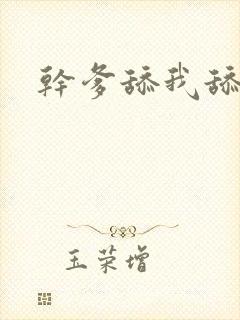 幹爹舔我舔
玉荣增